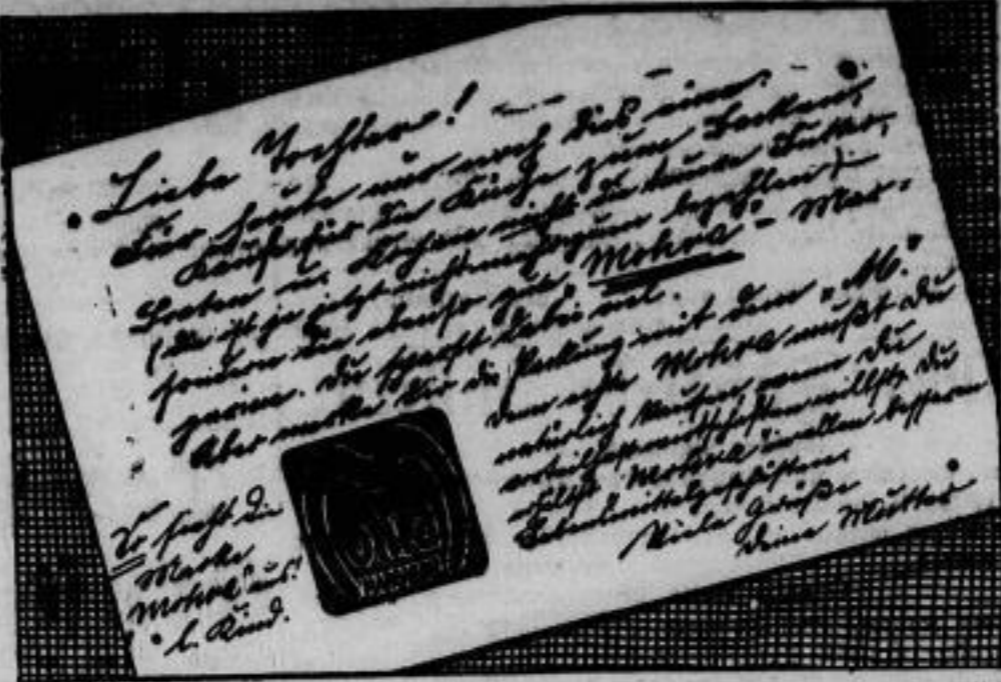 Liebe Tochter! - - - -
Für heute nur noch dies eine:
Kaufe für die Küche zum Backen,
Braten u. Kochen nicht die teure Butter,
(die ist ja jetzt nicht mehr zu bezahlen)
sondern die ebenso gute „Mohra“ - Mar-
garine. Du sparst dabei viel.
Aber merke Dir die Packung mit dem „M.“
denn echte Mohra mußt Du
natürlich kaufen wenn Du
vorteilhaft wirtschaften willst. Du
„Mohra“ in allen besseren
Lebensmittelgeschäften.
Viele Grüße
Deine Mutter
So sieht die
Marke
Mohra aus!
l. Kind.